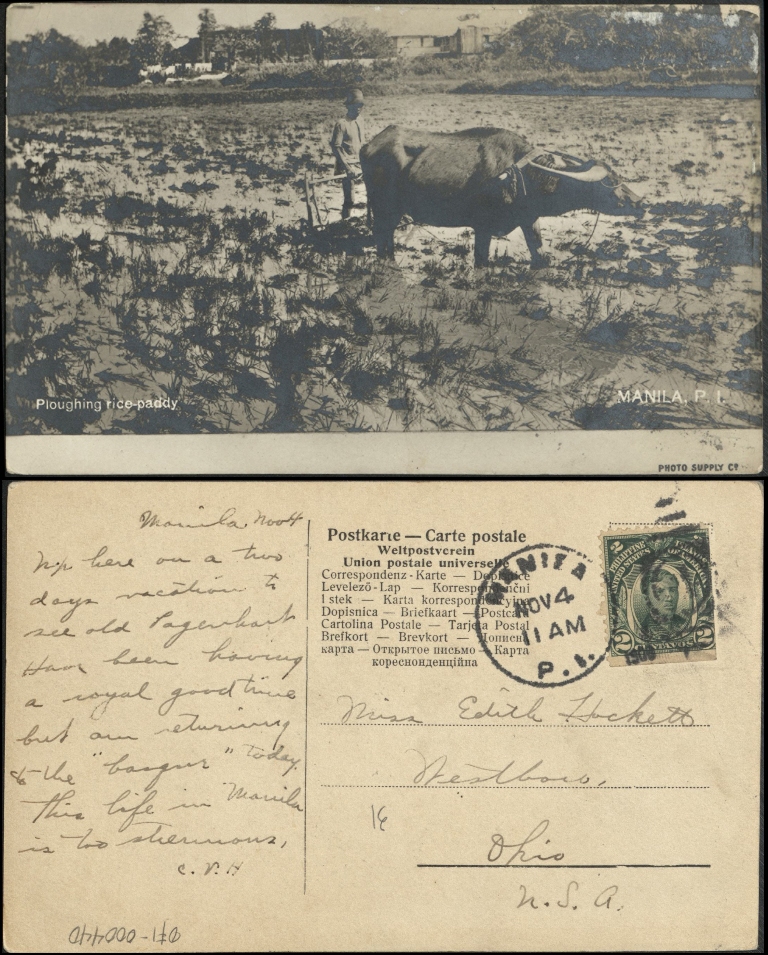 Ploughing rice-paddy
MANILA, P. I.
PHOTO SUPPLY Co
Manila Nov 4
Up here on a two
days vacation to
see old
Have been having
a royal good time
but am returning
to the " " today.
This life in Manila
is too strenuous,
C. V. H
Postkarte — Carte postale
Weltpostverein
Union postale universelle
Correspondenz-Karte — Dopisnice
Levelező-Lap — Korrespondenční
lístek — Karta korrespondencyjna
Dopisnica — Briefkaart — Postcard
Cartolina Postale — Tarjeta Postal
Brefkort — Brevkort — Дописна
карта — Открытое письмо — Карта
кореснонденційна
MANILA
NOV 4
11 AM
P. I.
PHILIPPINE ISLANDS
UNITED STATES OF AMERICA
2 2
Miss Edith Hockett
Westboro,
Ohio
U. S. A.
071-000440